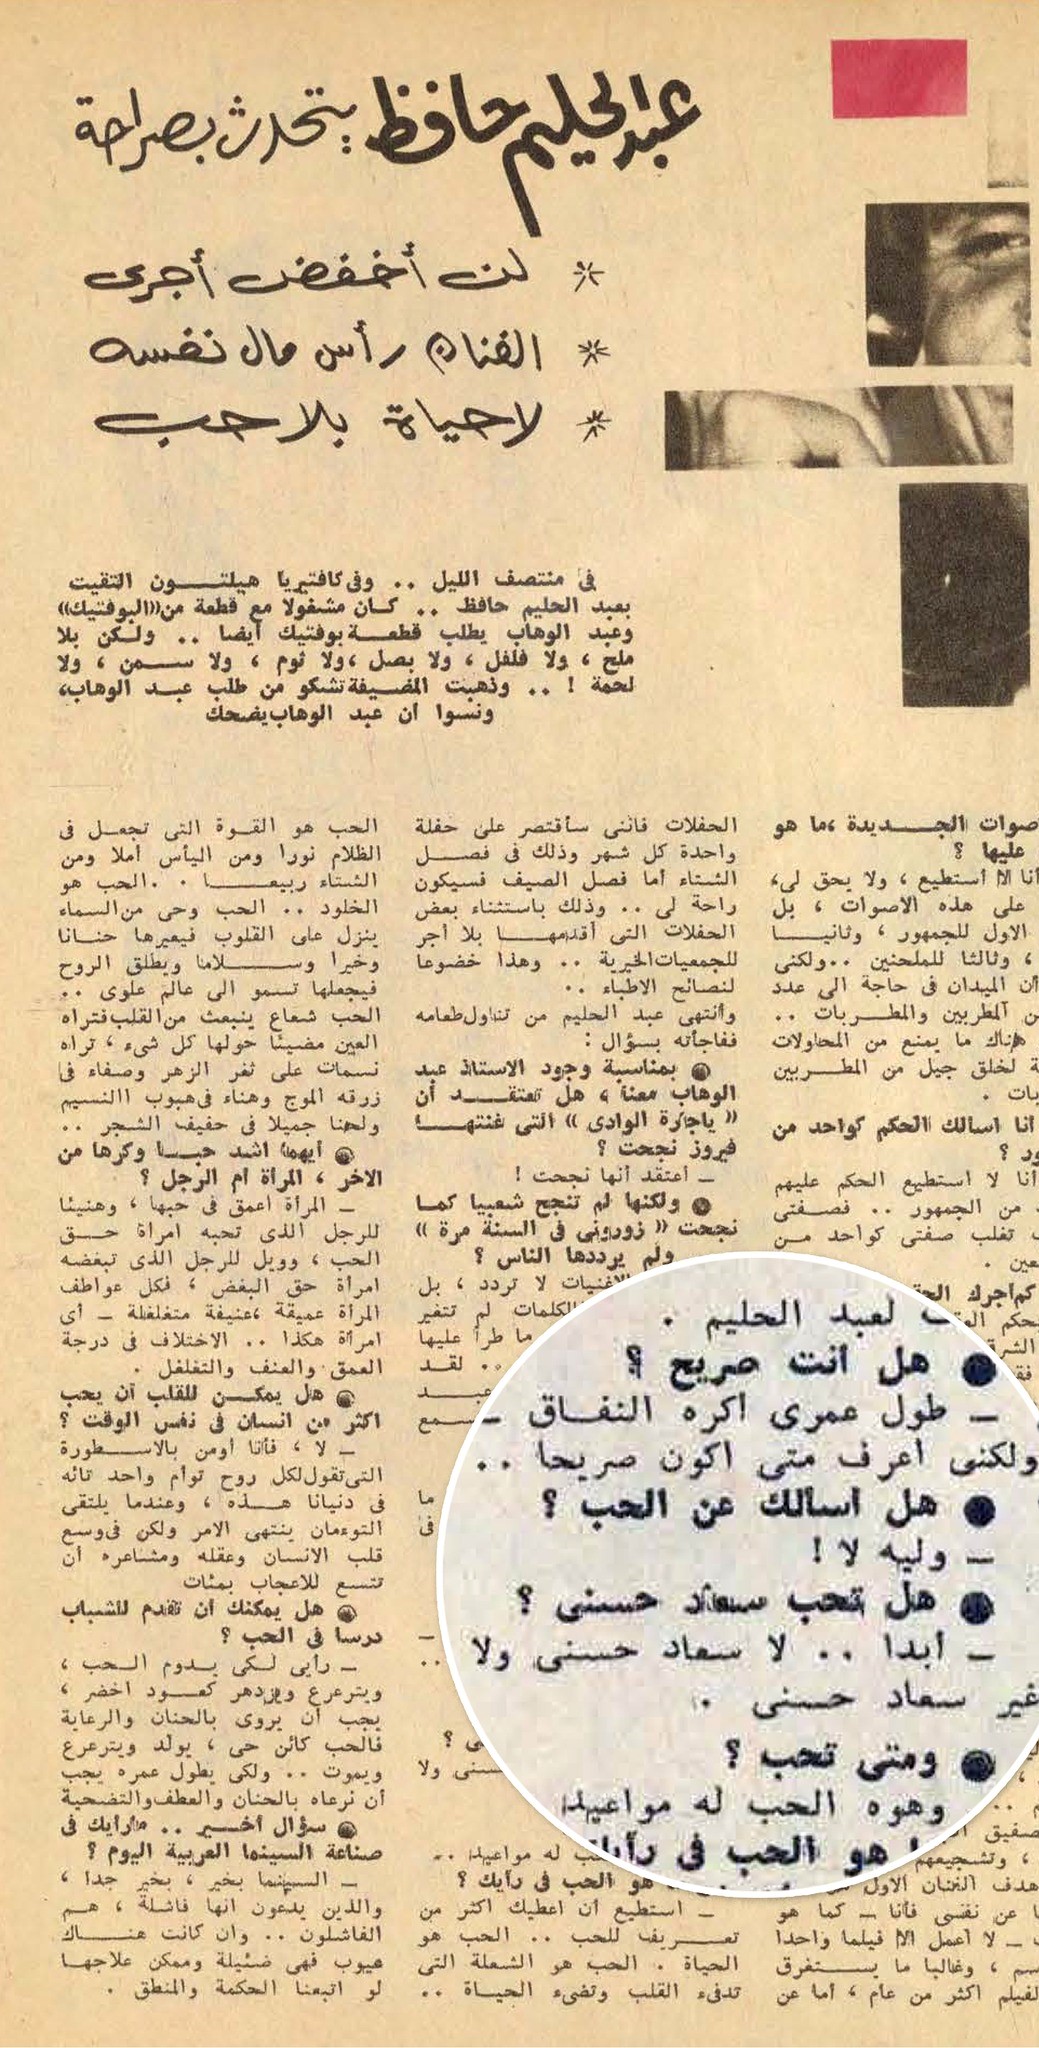 عبد الحليم حافظ يتحدث بصراحة
* لن أخفض أجرى
* الفنان رأس مال نفسه
* لا حياة بلا حب
فى منتصف الليل .. وفى كافتيريا هيلتـــون التقيت
بعبد الحليم حافظ .. كان مشغولا مع قطعة من ((البوفتيك))
وعبد الوهاب يطلب قطعـــة بوفتيك أيضا .. ولكن بلا
ملح ، ولا فلفل ، ولا بصل ، ولا ثوم ، ولا ســـمن ، ولا
لحمة ! .. وذهبت المضيفة تشكو من طلب عبد الوهاب،
ونسوا أن عبد الوهاب يضحك
صوات الجـــديدة ،ما هو
عليها ؟
أنا لا أستطيع ، ولا يحق لى،
على هذه الاصوات ، بل
الاول للجمهور ، وثانيـــا
، وثالثا للملحنين ..ولكنى
أن الميدان فى حاجة الى عدد
المطربين والمطـــربات ..
هناك ما يمنع من المحاولات
لخلق جيل من المطـــربين
أنا اسالك الحكم كواحد من
أنا لا استطيع الحكم عليهم
من الجمهور .. فصفتى
تغلب صفتى كواحد مـن
صفيق
، وتشجيعهم
هدف الفنان الاول
عن نفسى فأنا ـ كما هو
ـ لا أعمل الا فيلما واحدا
، وغالبا ما يســـتغرق
لفيلم اكثر من عام ، أما عن
الحفلات فاننى سأقتصر على حفلة
واحدة كل شهر وذلك فى فصـــل
الشتاء أما فصل الصيف فسيكون
راحة لى .. وذلك باستثناء بعض
الحفلات التى أقدمهـــا بلا أجر
للجمعيات الخيرية .. وهذا خضوعا
لنصائح الاطباء ..
وأنتهى عبد الحليم من تناول طعامه
ففاجأته بسؤال :
● بمناسبة وجود الاستاذ عبد
الوهاب معنا ، هل تعتقـــد أن
(( ياجارة الوادى )) التى غنتهـــا
فيروز نجحت ؟
ـ أعتقد أنها نجحت !
● ولكنها لم تنجح شعبيا كمـا
نجحت (( زورونى فى السنة مرة ))
ولم يرددها الناس ؟
الاغنيات لا تردد ، بل
الكلمات لم تتغير
ما طرأ عليها
.. لقد
لعبد الحليم .
● هل أنت صريح ؟
ـ طول عمرى أكره النفـاق ـ
ولكنى أعرف متى أكون صريحا ..
● هل اسالك عن الحب ؟
ـ وليه لا !
● هل تحب سعاد حسنى ؟
ـ أبدا .. لا سعاد حسنى ولا
غير سعاد حسنى .
● ومتى تحب ؟
وهوه الحب له مواعيد
هو الحب فى رأيك
له مواعيد ..
هو الحب فى رأيك ؟
ـ استطيع أن أعطيك أكثر من
تعـــريف للحب .. الحب هو
الحياة . الحب هو الشعلة التى
تدفىء القلب وتضىء الحيـاة ..
الحب هو القـــوة التى تجعـل فى
الظلام نورا ومن اليأس أملا ومن
الشتاء ربيعـــا . .الحب هو
الخلود .. الحب وحى من السماء
ينزل على القلوب فيعيرها حنـانا
وخيرا وســـلاما ويطلق الروح
فيجعلها تسمو الى عالم علوى ..
الحب شعاع ينبعث من القلب فتراه
العين مضيئا حولها كل شىء ، تراه
نسمات على ثغر الزهر وصفاء فى
زرقه الموج وهناء فى هبوب االنسيم
ولحنا جميلا فى حفيف الشجر ..
● أيهما اشد حبـــا وكرها من
الاخر ، المرأة أم الرجل ؟
ـ المرأة أعمق فى حبها ، وهنيئا
للرجل الذى تحبه امرأة حـــق
الحب ، وويل للرجل الذى تبغضه
امرأة حق البغض ، فكل عواطف
المرأة عميقة ،عنيفة متغلغلة ـ أى
امرأة هكذا .. الاختلاف فى درجة
العمق والعنف والتغلغل .
● هل يمكـــن للقلب أن يحب
اكثر من انسان فى نفس الوقت ؟
ـ لا ، فأنا أومن بالاســـطورة
التى تقول لكل روح توأم واحد تائه
فى دنيانا هـــذه ، وعندما يلتقى
التوءمان ينتهى الامر ولكن فى وسع
قلب الانسان وعقله ومشاعره أن
تتسع للاعجاب بمئات
● هل يمكنك أن تقدم للشباب
درسا فى الحب ؟
ـ رأيى لـكى يـدوم الـحب ،
ويترعرع ويزدهر كعـــود اخضر ،
يجب أن يروى بالحنان والرعاية
فالحب كائن حى ، يولد ويترعرع
ويموت .. ولكى يطول عمره يجب
أن نرعاه بالحنان والعطف والتضحية
● سؤال أخـــير .. مارأيك فى
صناعة السينما العربية اليوم ؟
ـ السينما بخير ، بخير جدا ،
والذين يدعون انها فاشلة ، هـم
الفاشلون .. وان كانت هنـــاك
عيوب فهى ضئيلة وممكن علاجها
لو اتبعنا الحكمة والمنطق .